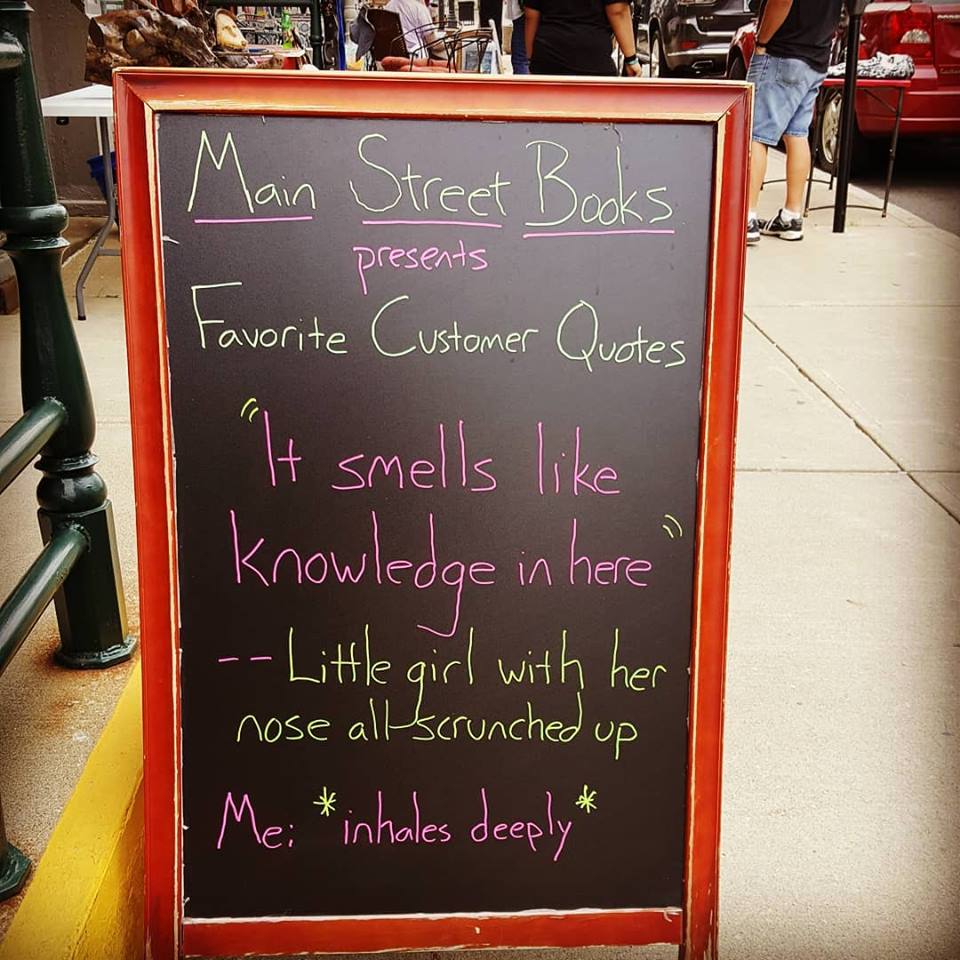 Main Street Books
presents
Favorite Customer Quotes
"It smells like
knowledge in here"
-- Little girl with her
nose all scrunched up
Me: *inhales deeply*